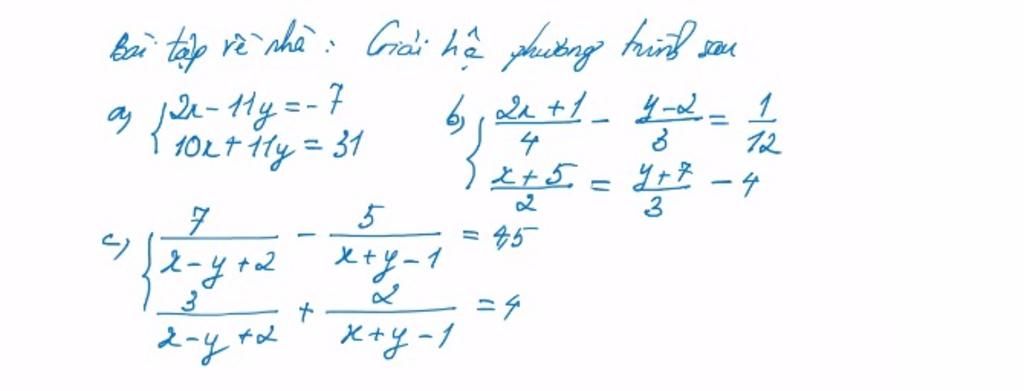 Bài tập về nhà: Giải hệ phương trình sau
a) { 2x - 11y = -7
10x + 11y = 31
b) { (2x + 1)/4 - (y - 2)/3 = 1/12
(x + 5)/2 = (y + 7)/3 - 4
c) { 7/(x - y + 2) - 5/(x + y - 1) = 4,5
3/(x - y + 2) + 2/(x + y - 1) = 4